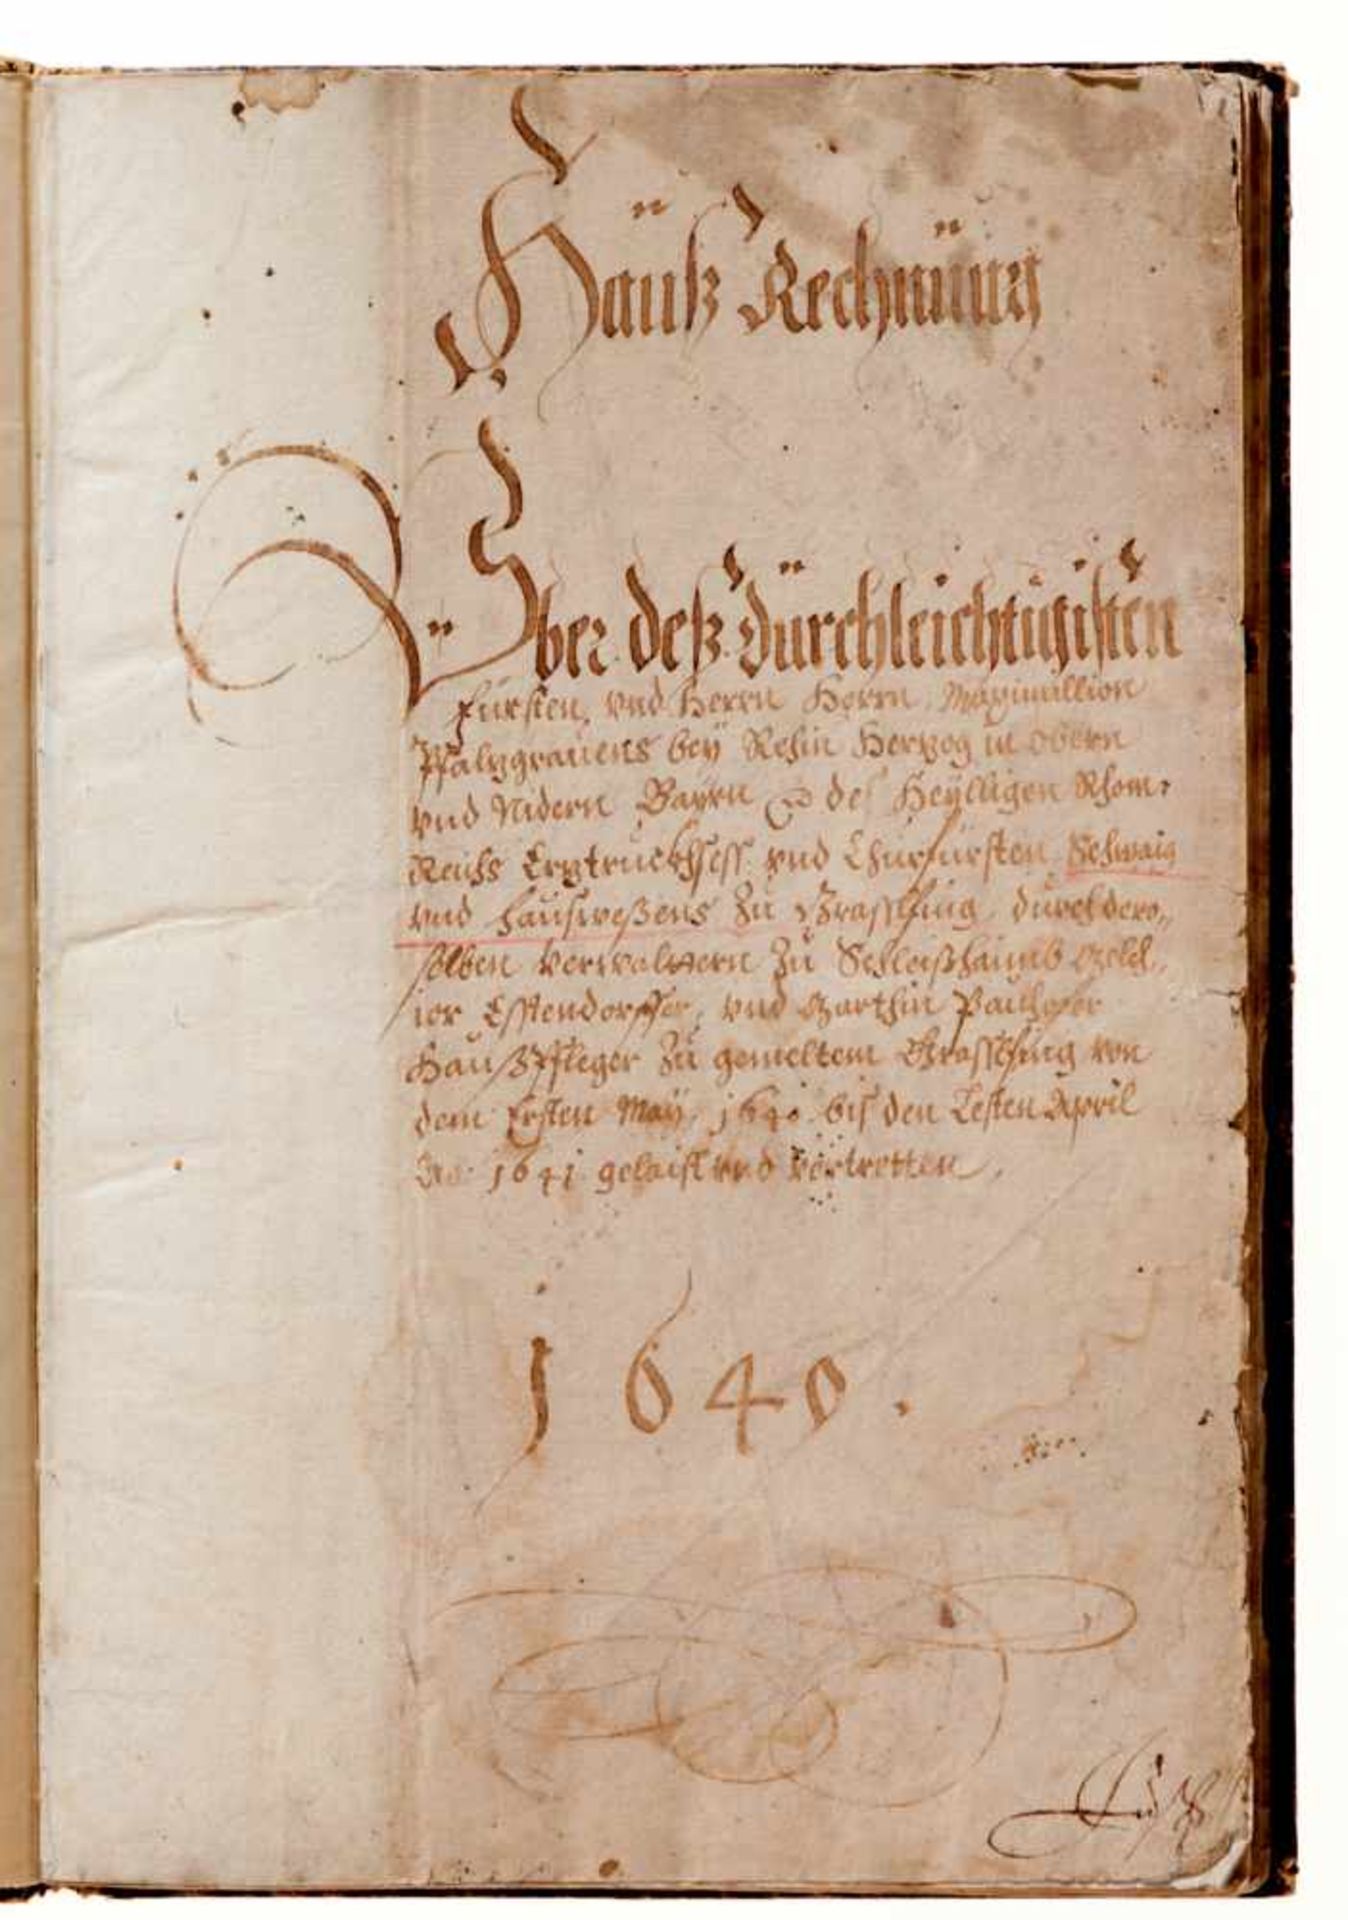 Hauß Rechnung
Vber deß durchleichtigisten
Fürsten, vnd Herrn Herrn Maximillion
Pfalzgrauens bey Rehin Herzog in obern
vnd Nidern Bayrn des Heylligen Rhom:
Reichs Erztruckhsess vnd Churfürsten Schwaig
vnd Hauswesens Zu Grassfing durch dero„
selben Verwaltern Zu Schleißhaimb Melch„
ior Esstendorffer, vnd Marthin Paulhofer
Haußpfleger Zu gemeltem Grassfing von
dem Ersten May 1640 bis den Lesten April
Ao: 1641 gelaist vnd vertretten
1640.